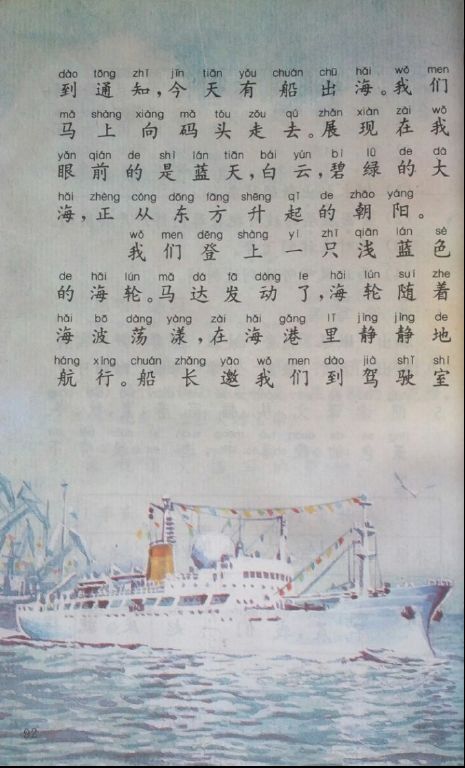 dào tōng zhī jīn tiān yǒu chuán chū hǎi wǒ men
到通知,今天有船出海。我们
mǎ shàng xiàng mǎ tóu zǒu qù zhǎn xiàn zài wǒ
马上向码头走去。展现在我
yǎn qián de shì lán tiān bái yún bì lǜ de dà
眼前的是蓝天,白云,碧绿的大
hǎi zhèng cóng dōng fāng shēng qǐ de zhāo yáng
海,正从东方升起的朝阳。
wǒ men dēng shàng yì zhī qiǎn lán sè
我们登上一只浅蓝色
de hǎi lún mǎ dá fā dòng le hǎi lún suí zhe
的海轮。马达发动了,海轮随着
hǎi bō dàng yàng zài hǎi gǎng lǐ jìng jìng de
海波荡漾,在海港里静静地
háng xíng chuán zhǎng yāo wǒ men dào jià shǐ shì
航行。船长邀我们到驾驶室
92